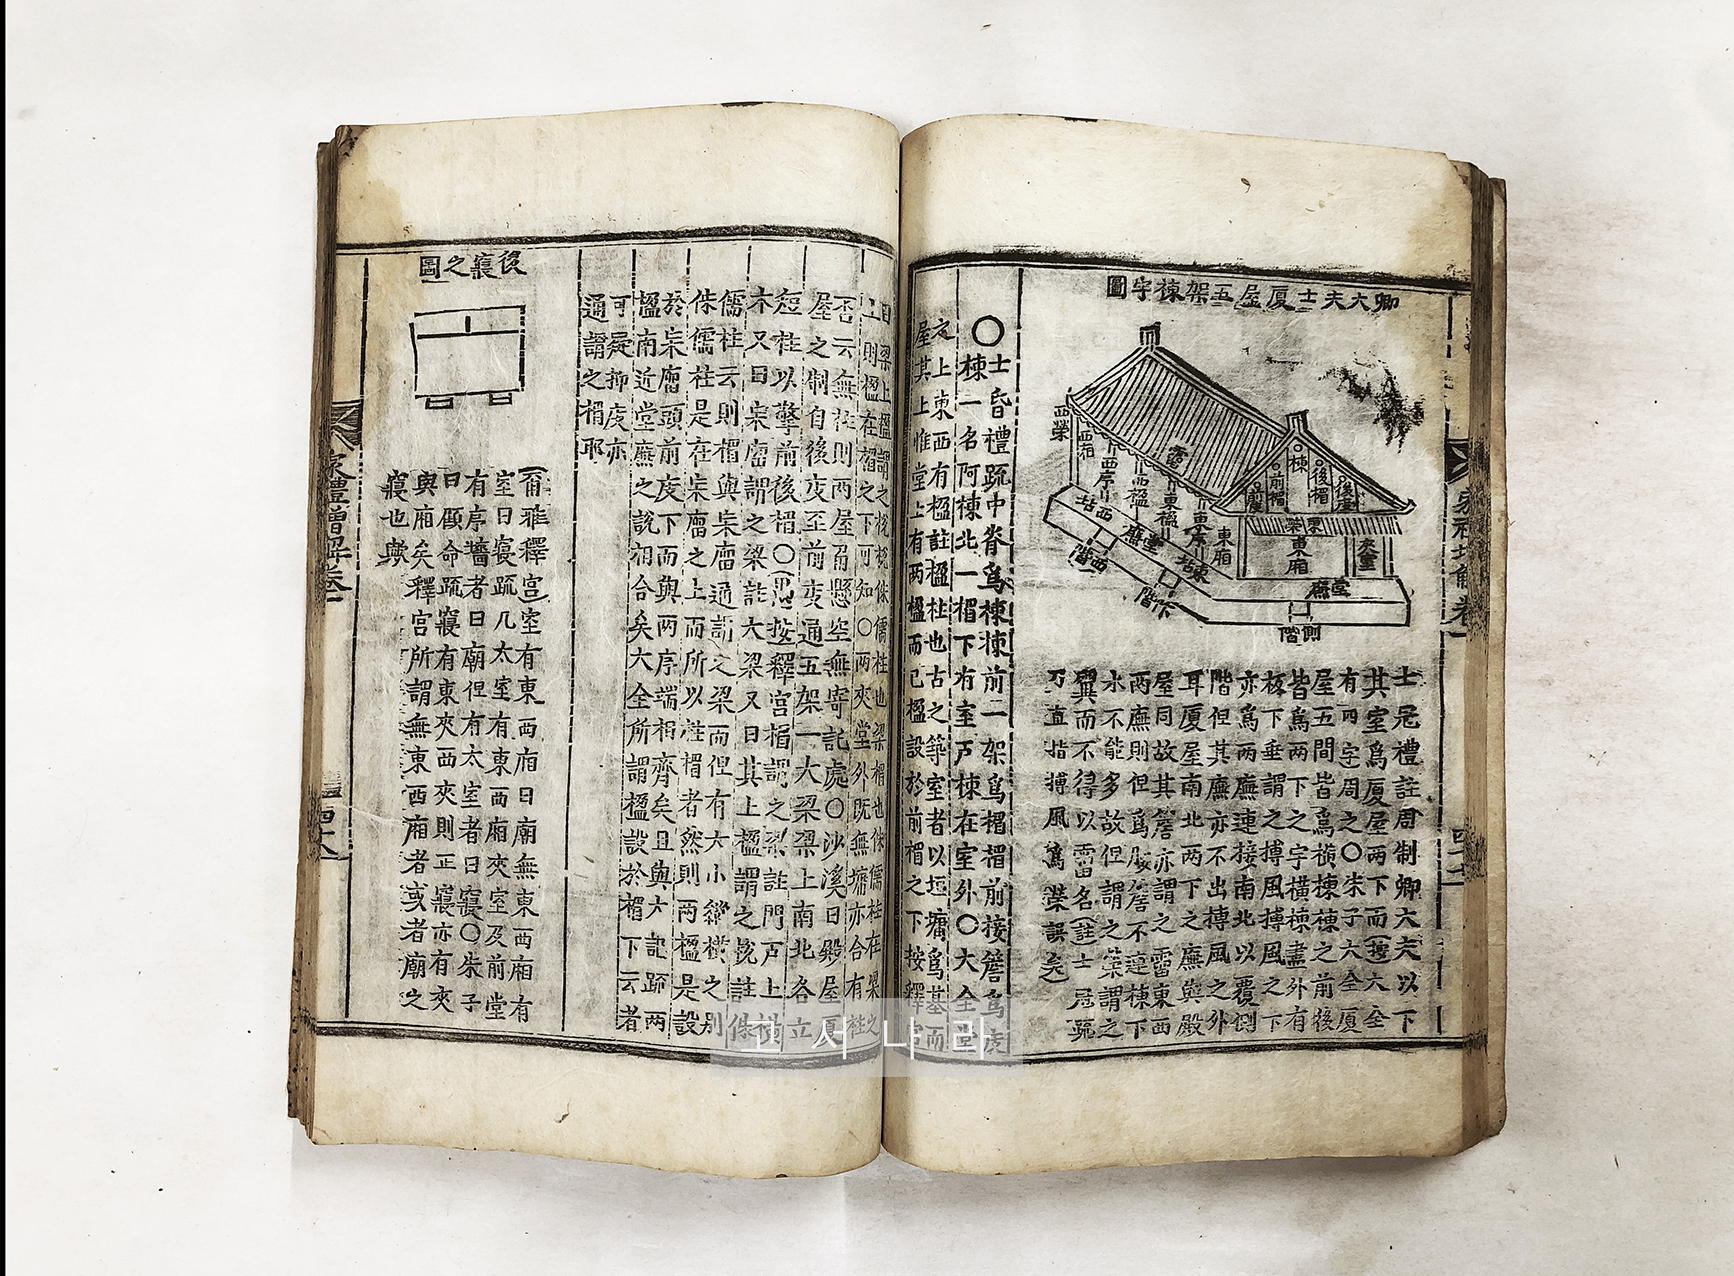 卿大夫士厦屋五架棟宇圖
西榮
西廂
西序
西楹
霤
東楹
東序
東廂
前庪
前楣
棟
後楣
後庪
東榮
東廂
夾室
西坫
堂廉
東坫
堂廉
西階
阼階
側階
士冠禮註周制卿大夫以下
其室爲厦屋兩下而
有四字周之〇朱子大全厦
屋五間皆爲橫棟棟之前後
皆爲兩下之宇橫棟盡外有
板下垂謂之搏風搏風之下
亦爲兩廡連接南北以覆側
階但其廡亦不出搏風之外
耳厦屋南北兩下之廡與殿
屋同故其簷亦謂之霤東西
兩廡則但爲腰簷不連棟下
水不能多故但謂之榮謂之
翼而不得以霤名(註)士冠疏
乃直指搏風爲榮誤矣
〇士昏禮疏中脊爲棟棟前一架爲楣楣前接簷爲庪
棟一名阿棟北一楣下有室戶棟在室外〇大全堂
之上東西有楹註楹柱也古之築室者以垣墉爲基而
屋其上惟堂上有兩楹而已楹設於前楣之下按釋宮
曰梁上楹謂之梲梲侏儒柱也梁楣也侏儒柱在梁之
上則楹在楣之下可知〇兩夾堂外既無墉亦合有柱
否云無柱則兩屋角懸空無寄託處〇沙溪曰殿屋厦
屋之制自後庪至前庪通五架一大梁梁上南北各立
短柱以擎前後楣〇按釋宮楣謂之梁註門戶上橫
木又曰杗廇謂之梁註大梁又曰其上楹謂之梲註侏
儒柱云則楣與杗廇通謂之梁而但有大小縱橫之別
侏儒柱是在杗廇之上而所以柱楣者然則兩楹是設
於杗廇頭前庪下而與兩序端相齊矣且與大記疏兩
楹南近堂廉之說相合矣大全所謂楹設於楣下云者
可疑抑庪亦
通謂之楣耶
後寢之圖
(爾雅釋宮)室有東西廂曰廟無東西廂有
室曰寢疏凡太室有東西廂夾室及前堂
有序牆者曰廟但有太室者曰寢〇朱子
曰顧命疏寢有東夾西夾則正寢亦有夾
與廂矣釋宮所謂無東西廂者或者廟之
寢也歟
家禮增解卷一
四十八
고서나라